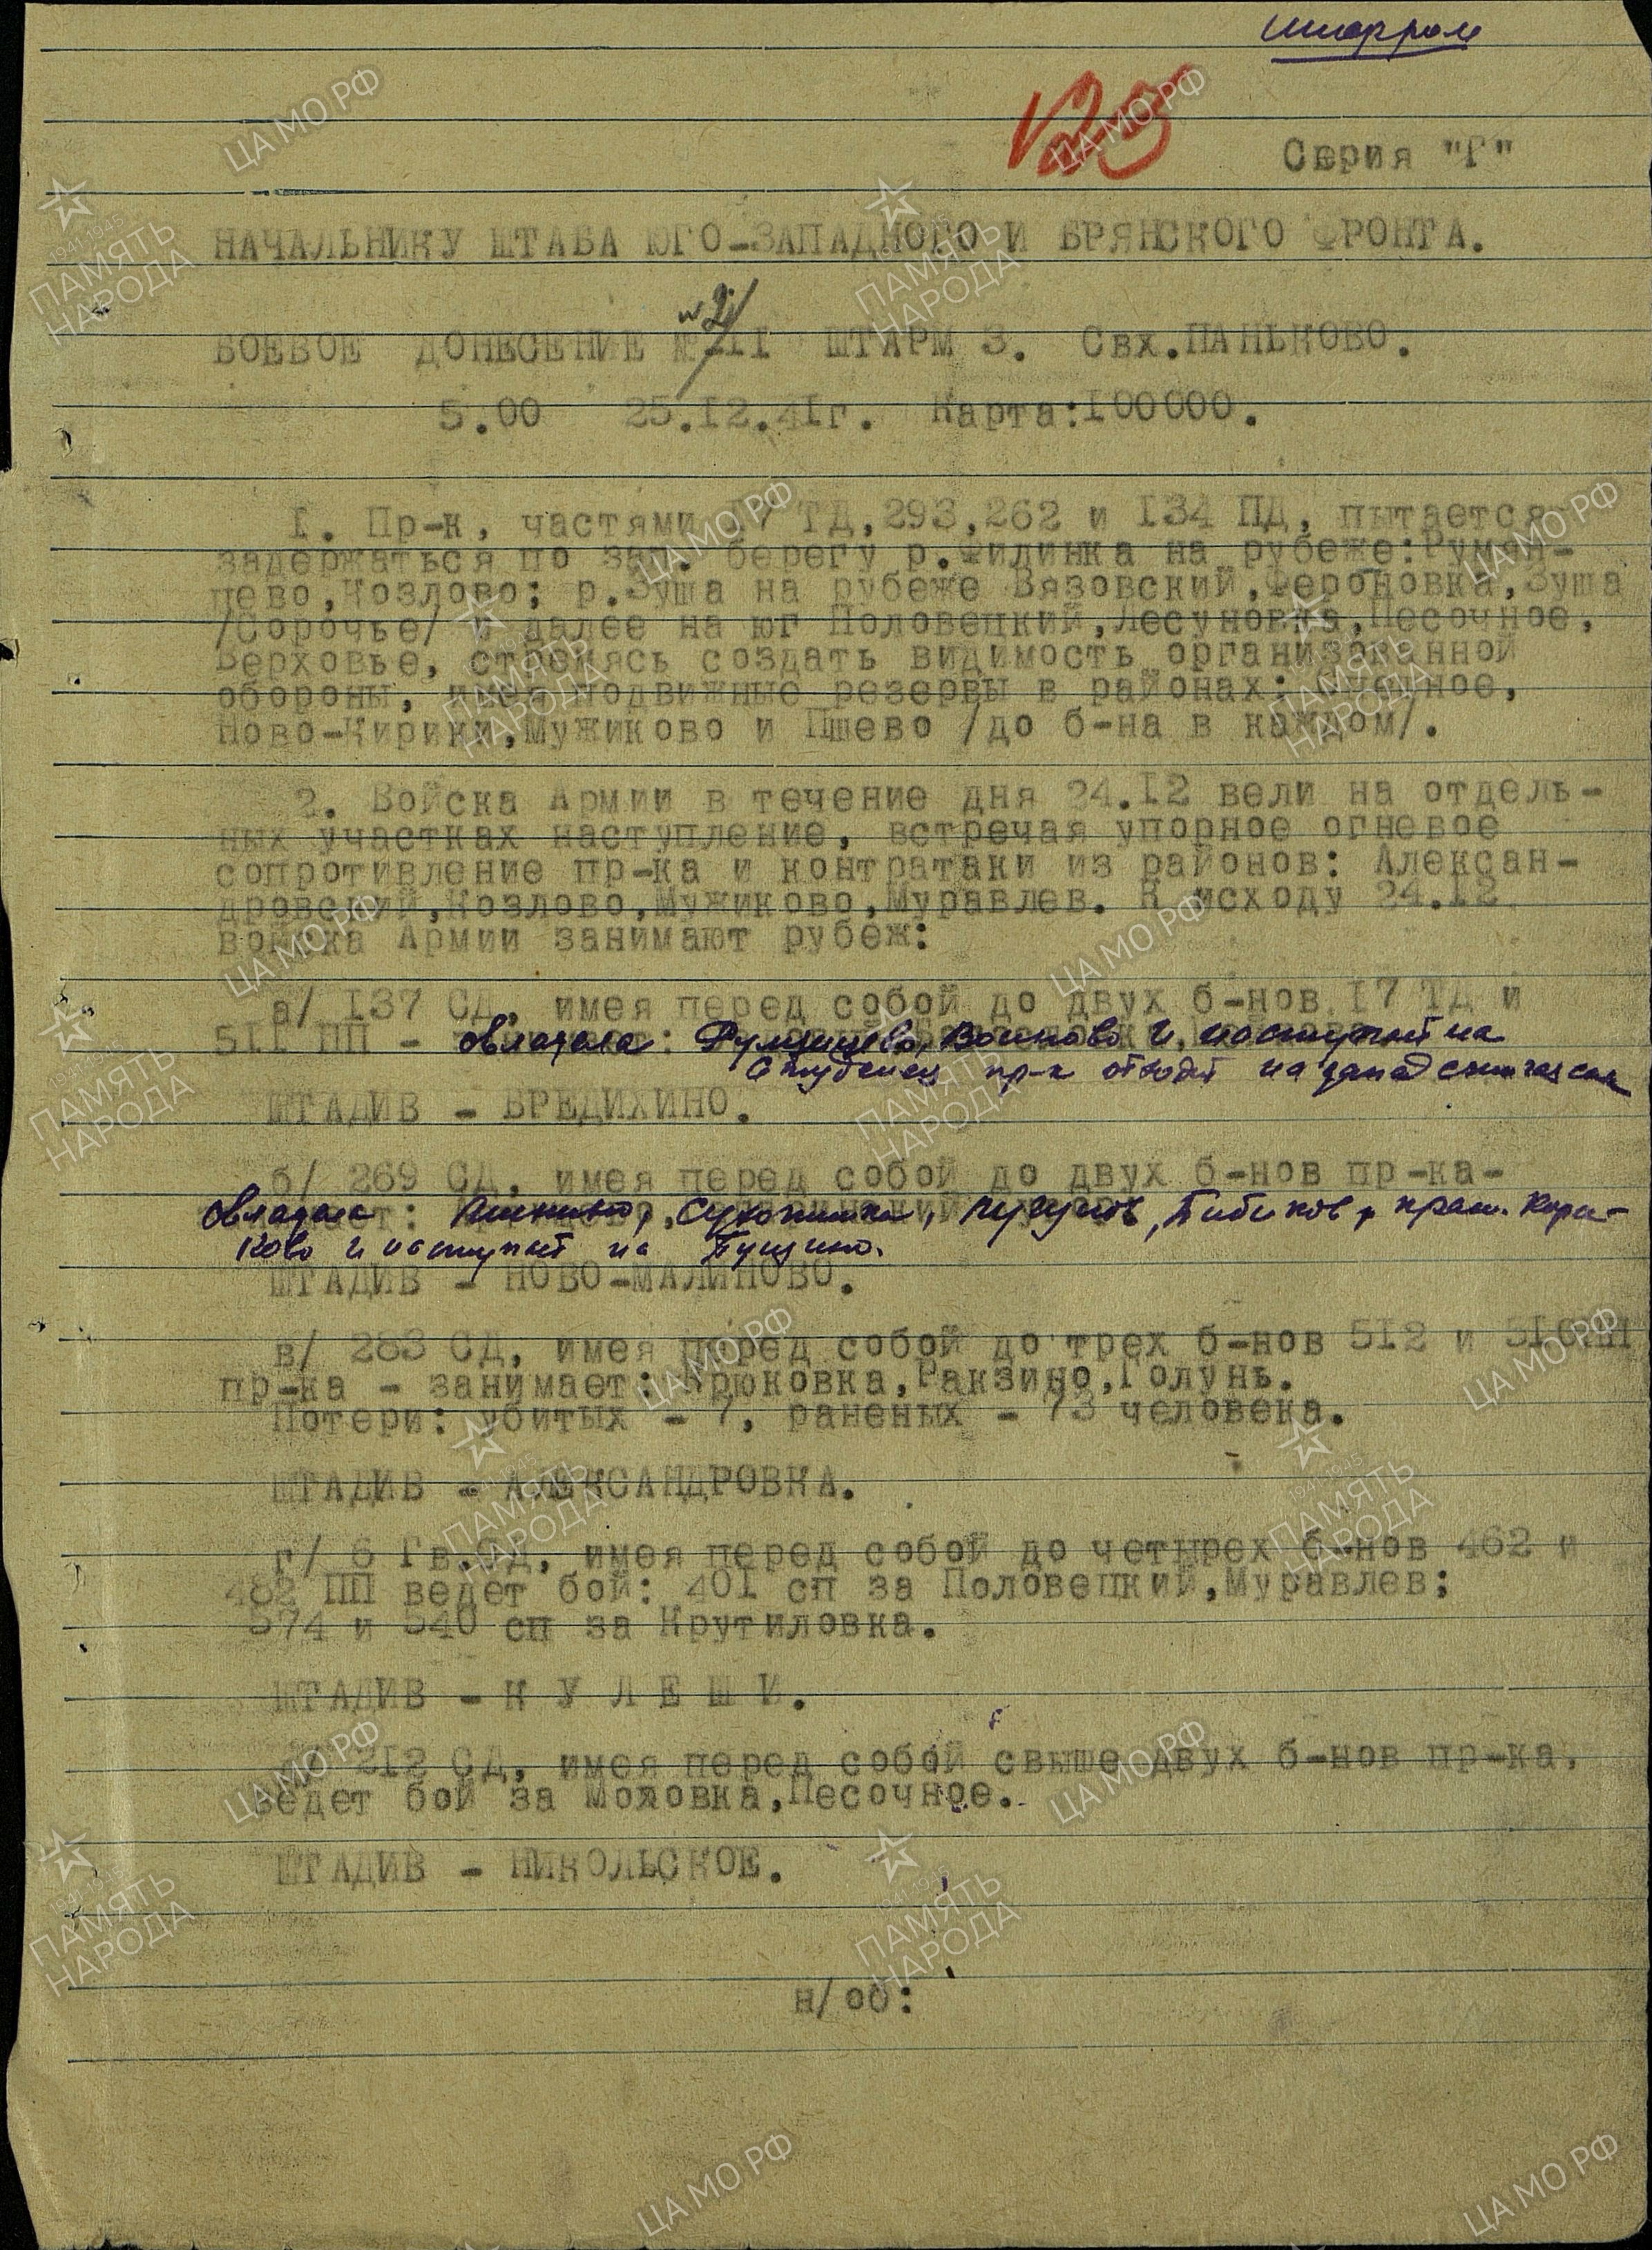 шифром
Серия "Г"
НАЧАЛЬНИКУ ШТАБА ЮГО-ЗАПАДНОГО И БРЯНСКОГО ФРОНТА.
БОЕВОЕ ДОНЕСЕНИЕ ШТАРМ 3. Свх.ПАНЬКОВО.
5.00 25.12.41г. Карта:100000.
1. Пр-к, частями 17 ТД,293,262 и 134 ПД, пытается
задержаться по зап. берегу р.Филинка на рубеже:Румян-
цево,Козлово; р.Зуша на рубеже Вязовский,Фероновка,Зуша
/Сорочье/ и далее на юг Половецкий,Лесуновка,Песочное,
Верховье, стремясь создать видимость организованной
обороны, имея подвижные резервы в районах:
Ново-Кирики,Мужиково и Пшево /до б-на в каждом/.
2. Войска Армии в течение дня 24.12 вели на отдель-
ных участках наступление, встречая упорное огневое
сопротивление пр-ка и контратаки из районов: Алексан-
дровский,Козлово,Мужиково,Муравлев. К исходу 24.12
войска Армии занимают рубеж:
а/ 137 СД, имея перед собой до двух б-нов 17 ТД и
511 ПП - овладела Румянцево, Воиново и наступает на
Студенец пр-к отходит на запад
ШТАДИВ - БРЕДИХИНО.
б/ 269 СД, имея перед собой до двух б-нов пр-ка-
овладела Чугунов, Бибиков,
ково и наступает на Пущино.
ШТАДИВ - НОВО-МАЛИНОВО.
в/ 283 СД, имея перед собой до трех б-нов 512 и
пр-ка - занимает: Крюковка,Ракзино,Голунь.
Потери: убитых - 7, раненых - 73 человека.
ШТАДИВ - АЛЕКСАНДРОВКА.
г/ 6 Гв.СД, имея перед собой до четырех б-нов 462 и
482 ПП ведет бой: 401 сп за Половецкий,Муравлев;
574 и 540 сп за Крутиловка.
ШТАДИВ - К У Л Е Ш И.
212 СД, имея перед собой свыше двух б-нов пр-ка,
ведет бой за Моховка,Песочное.
ШТАДИВ - НИКОЛЬСКОЕ.
н/об:
ЦАМО РФ
1941-1945
ПАМЯТЬ
НАРОДА